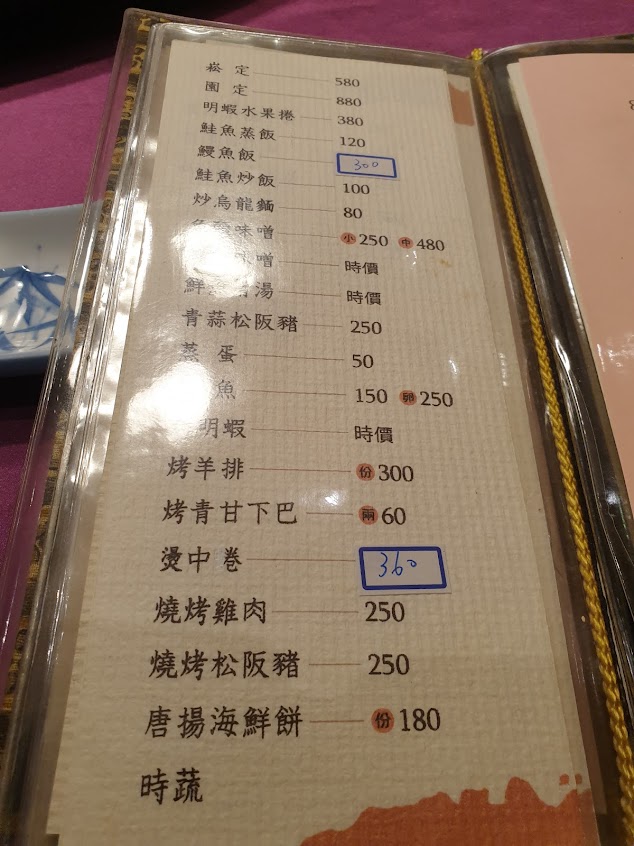 崧定 580
園定 880
明蝦水果捲 380
鮭魚蒸飯 120
鰻魚飯 300
鮭魚炒飯 100
炒烏龍麵 80
味噌 小 250 中 480
味噌 時價
鮮 湯 時價
青蒜松阪豬 250
蒸蛋 50
魚 150 卵 250
明蝦 時價
烤羊排 份 300
烤青甘下巴 兩 60
燙中卷 360
燒烤雞肉 250
燒烤松阪豬 250
唐揚海鮮餅 份 180
時蔬